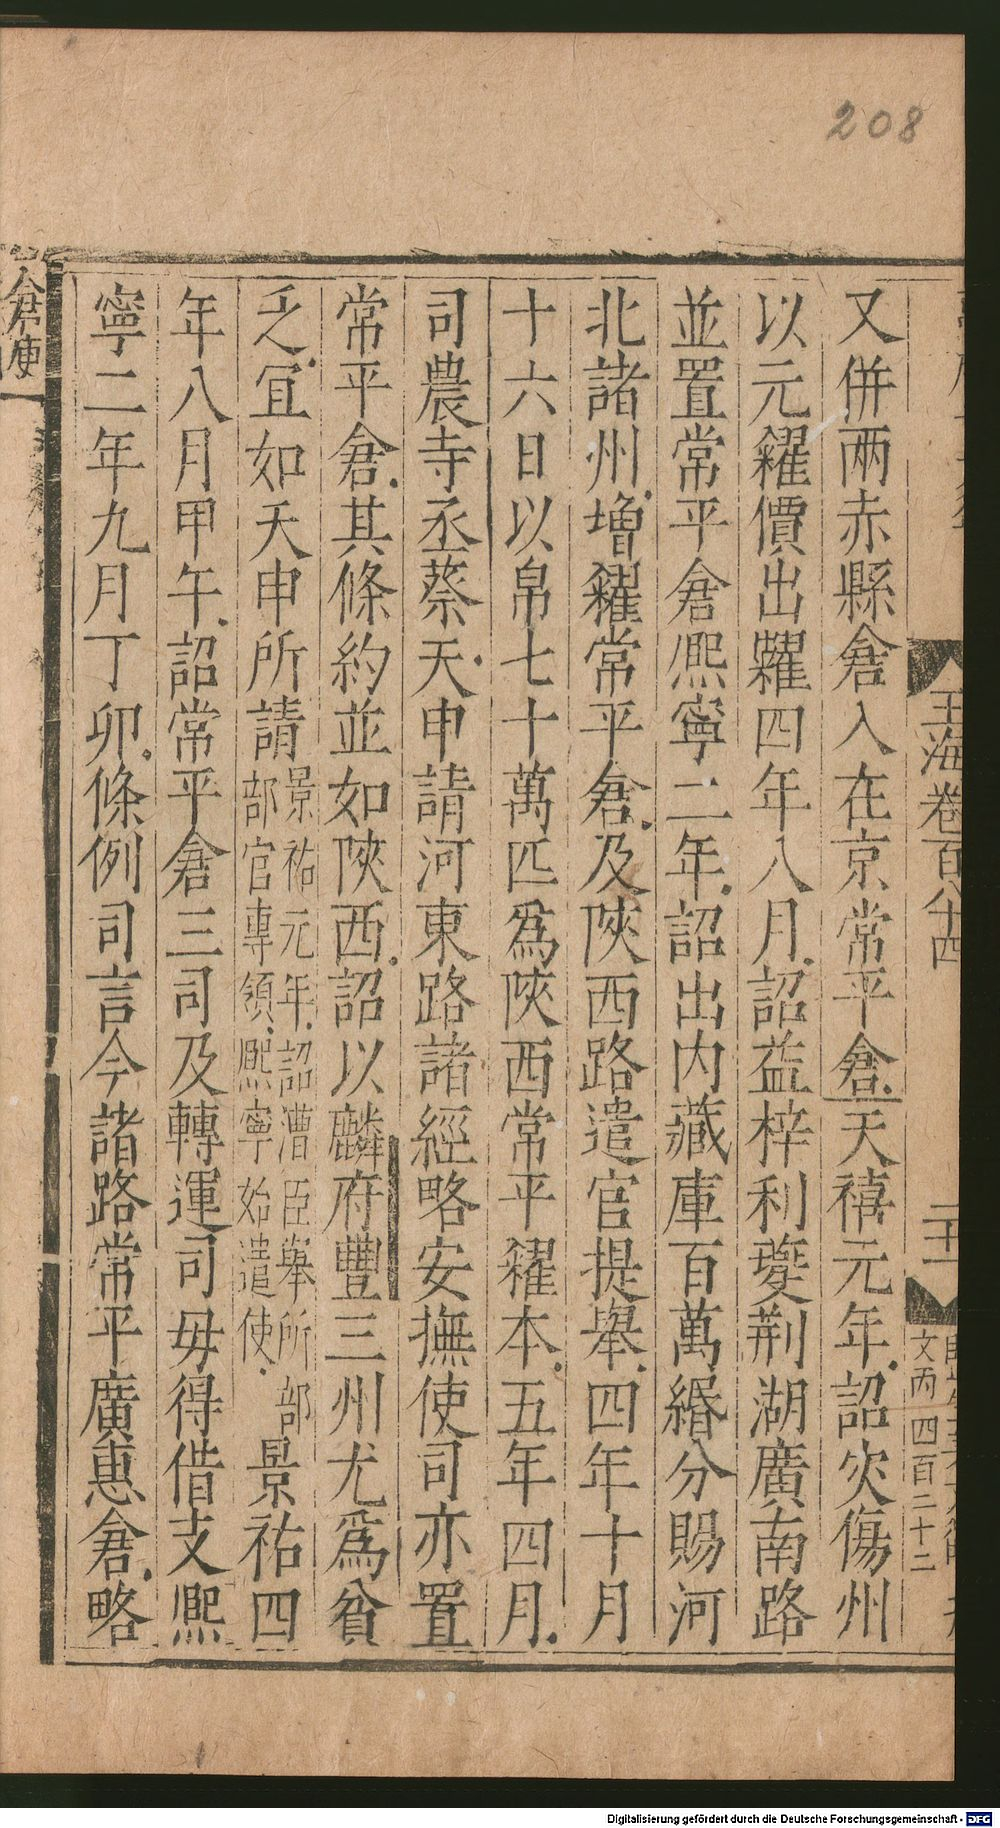 208
玉海卷百八十四
二十一
文丙 四百二十二
又併兩赤縣倉入在京常平倉天禧元年詔灾傷州
以元糴價出糶四年八月詔益梓利夔荆湖廣南路
並置常平倉熈寧二年詔出内藏庫百萬緡分賜河
北諸州增糴常平倉及陜西路遣官提舉四年十月
十六日以帛七十萬匹爲陜西常平糴本五年四月
司農寺丞蔡天申請河東路諸經略安撫使司亦置
常平倉其條約並如陜西詔以麟府豐三州尤爲貧
乏宜如天申所請景祐元年詔漕臣舉所部部官專領熈寧始遣使景祐四
年八月甲午詔常平倉三司及轉運司毋得借支熈
寧二年九月丁卯條例司言今諸路常平廣惠倉略
倉庾
Digitalisierung gefördert durch die Deutsche Forschungsgemeinschaft - DFG